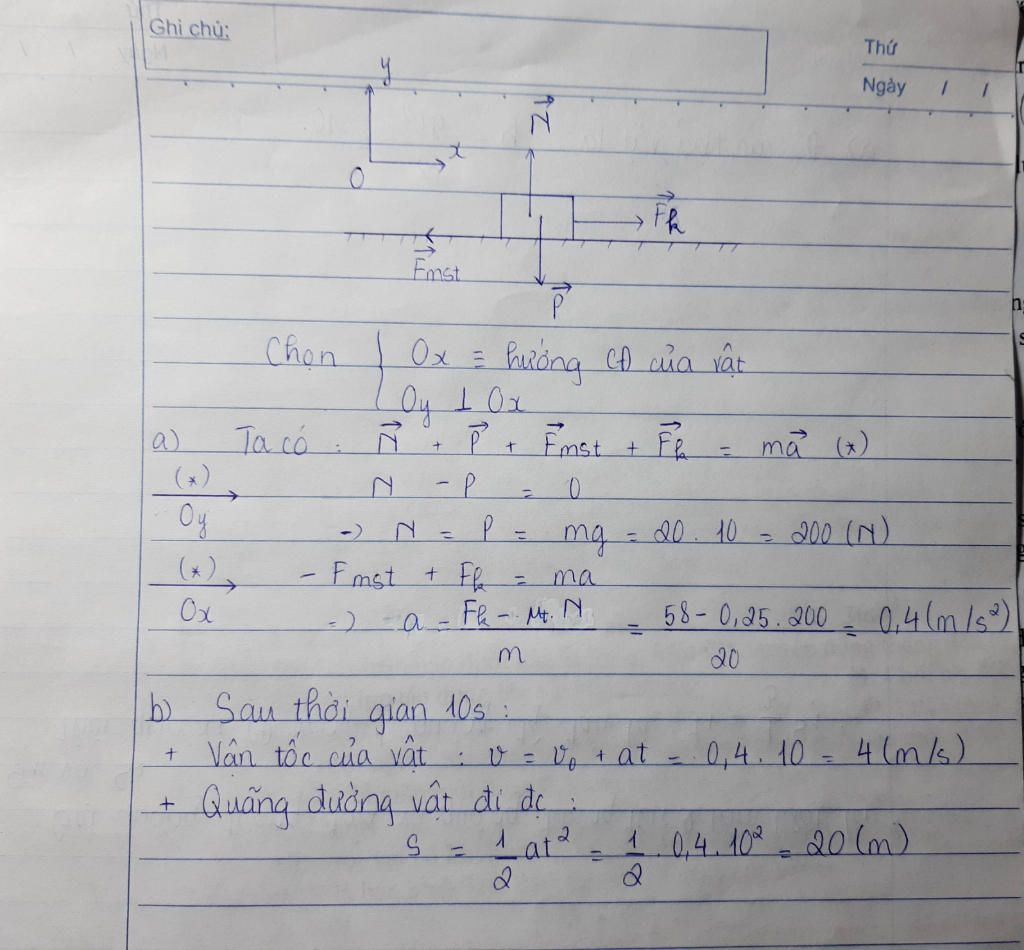 Ghi chú:
Thứ
Ngày / /
y
N⃗
x
O
F⃗k
F⃗mst
P⃗
Chọn { Ox ≡ hướng CĐ của vật
Oy ⊥ Ox
a) Ta có : N⃗ + P⃗ + F⃗mst + F⃗k = ma⃗ (*)
(*)/Oy → N - P = 0
=> N = P = mg = 20 . 10 = 200 (N)
(*)/Ox → - Fmst + Fk = ma
=> a = (Fk - μt. N)/m = (58 - 0,25 . 200)/20 = 0,4 (m/s²)
b) Sau thời gian 10s :
+ Vận tốc của vật : v = v₀ + at = 0,4 . 10 = 4 (m/s)
+ Quãng đường vật đi đc :
S = 1/2 at² = 1/2 . 0,4 . 10² = 20 (m)